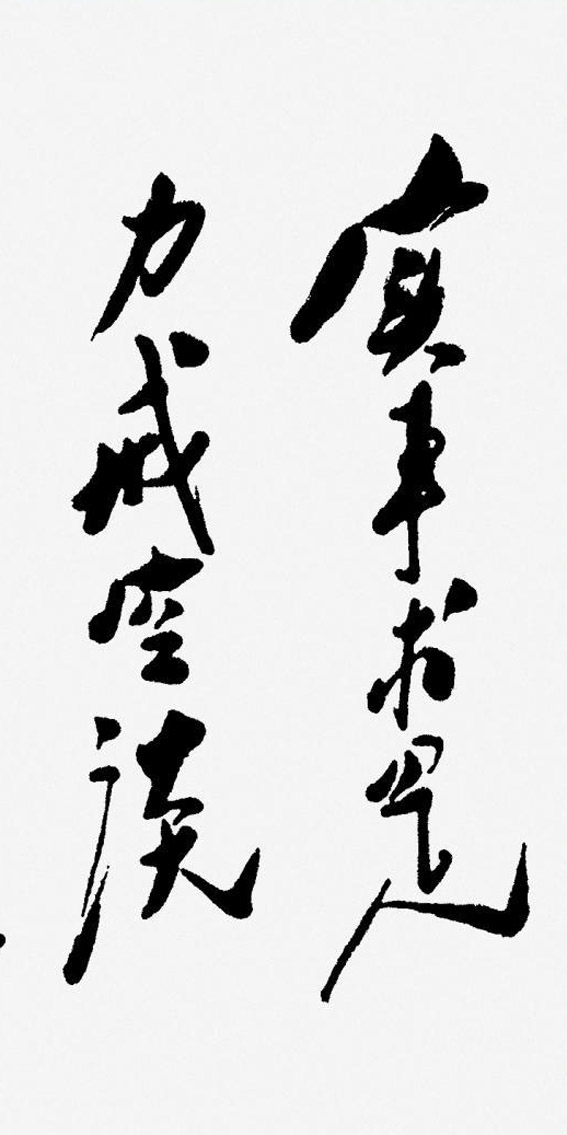 实事求是
力戒空谈